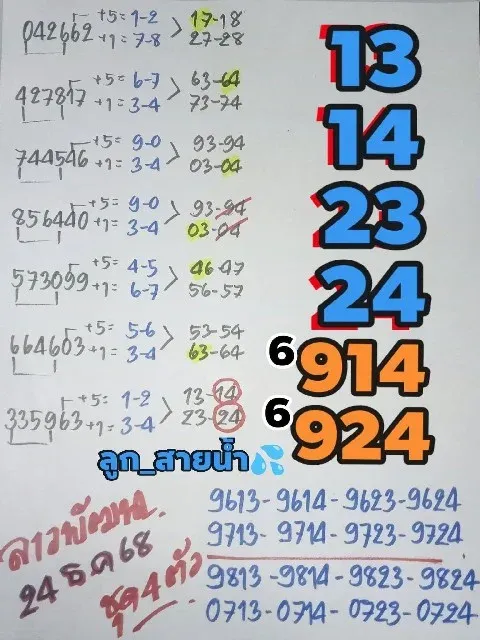 042662 +5= 1-2 > 17-18
+1= 7-8 27-28
427817 +5= 6-7 > 63-64
+1= 3-4 73-74
744546 +5= 9-0 > 93-94
+1= 3-4 03-04
856440 +5= 9-0 > 93-94
+1= 3-4 03-04
573099 +5= 4-5 > 46-47
+1= 6-7 56-57
664603 +5= 5-6 > 53-54
+1= 3-4 63-64
335963 +5= 1-2 > 13-14
+1= 3-4 23-24
13
14
23
24
6914
6924
ลูก_สายน้ำ
ลาวพัฒนา
24 ธ.ค 68
ชุด 4 ตัว
9613-9614-9623-9624
9713-9714-9723-9724
9813-9814-9823-9824
0713-0714-0723-0724